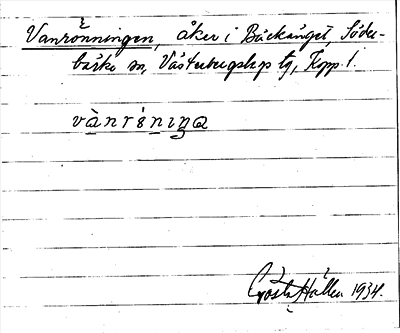 Vanrönningen, åker i Bäckänget, Söder-
bärke sn, Västerbergslags tg, Kopp. l.
vànrö́niŋa
Gösta Hallén 1934.